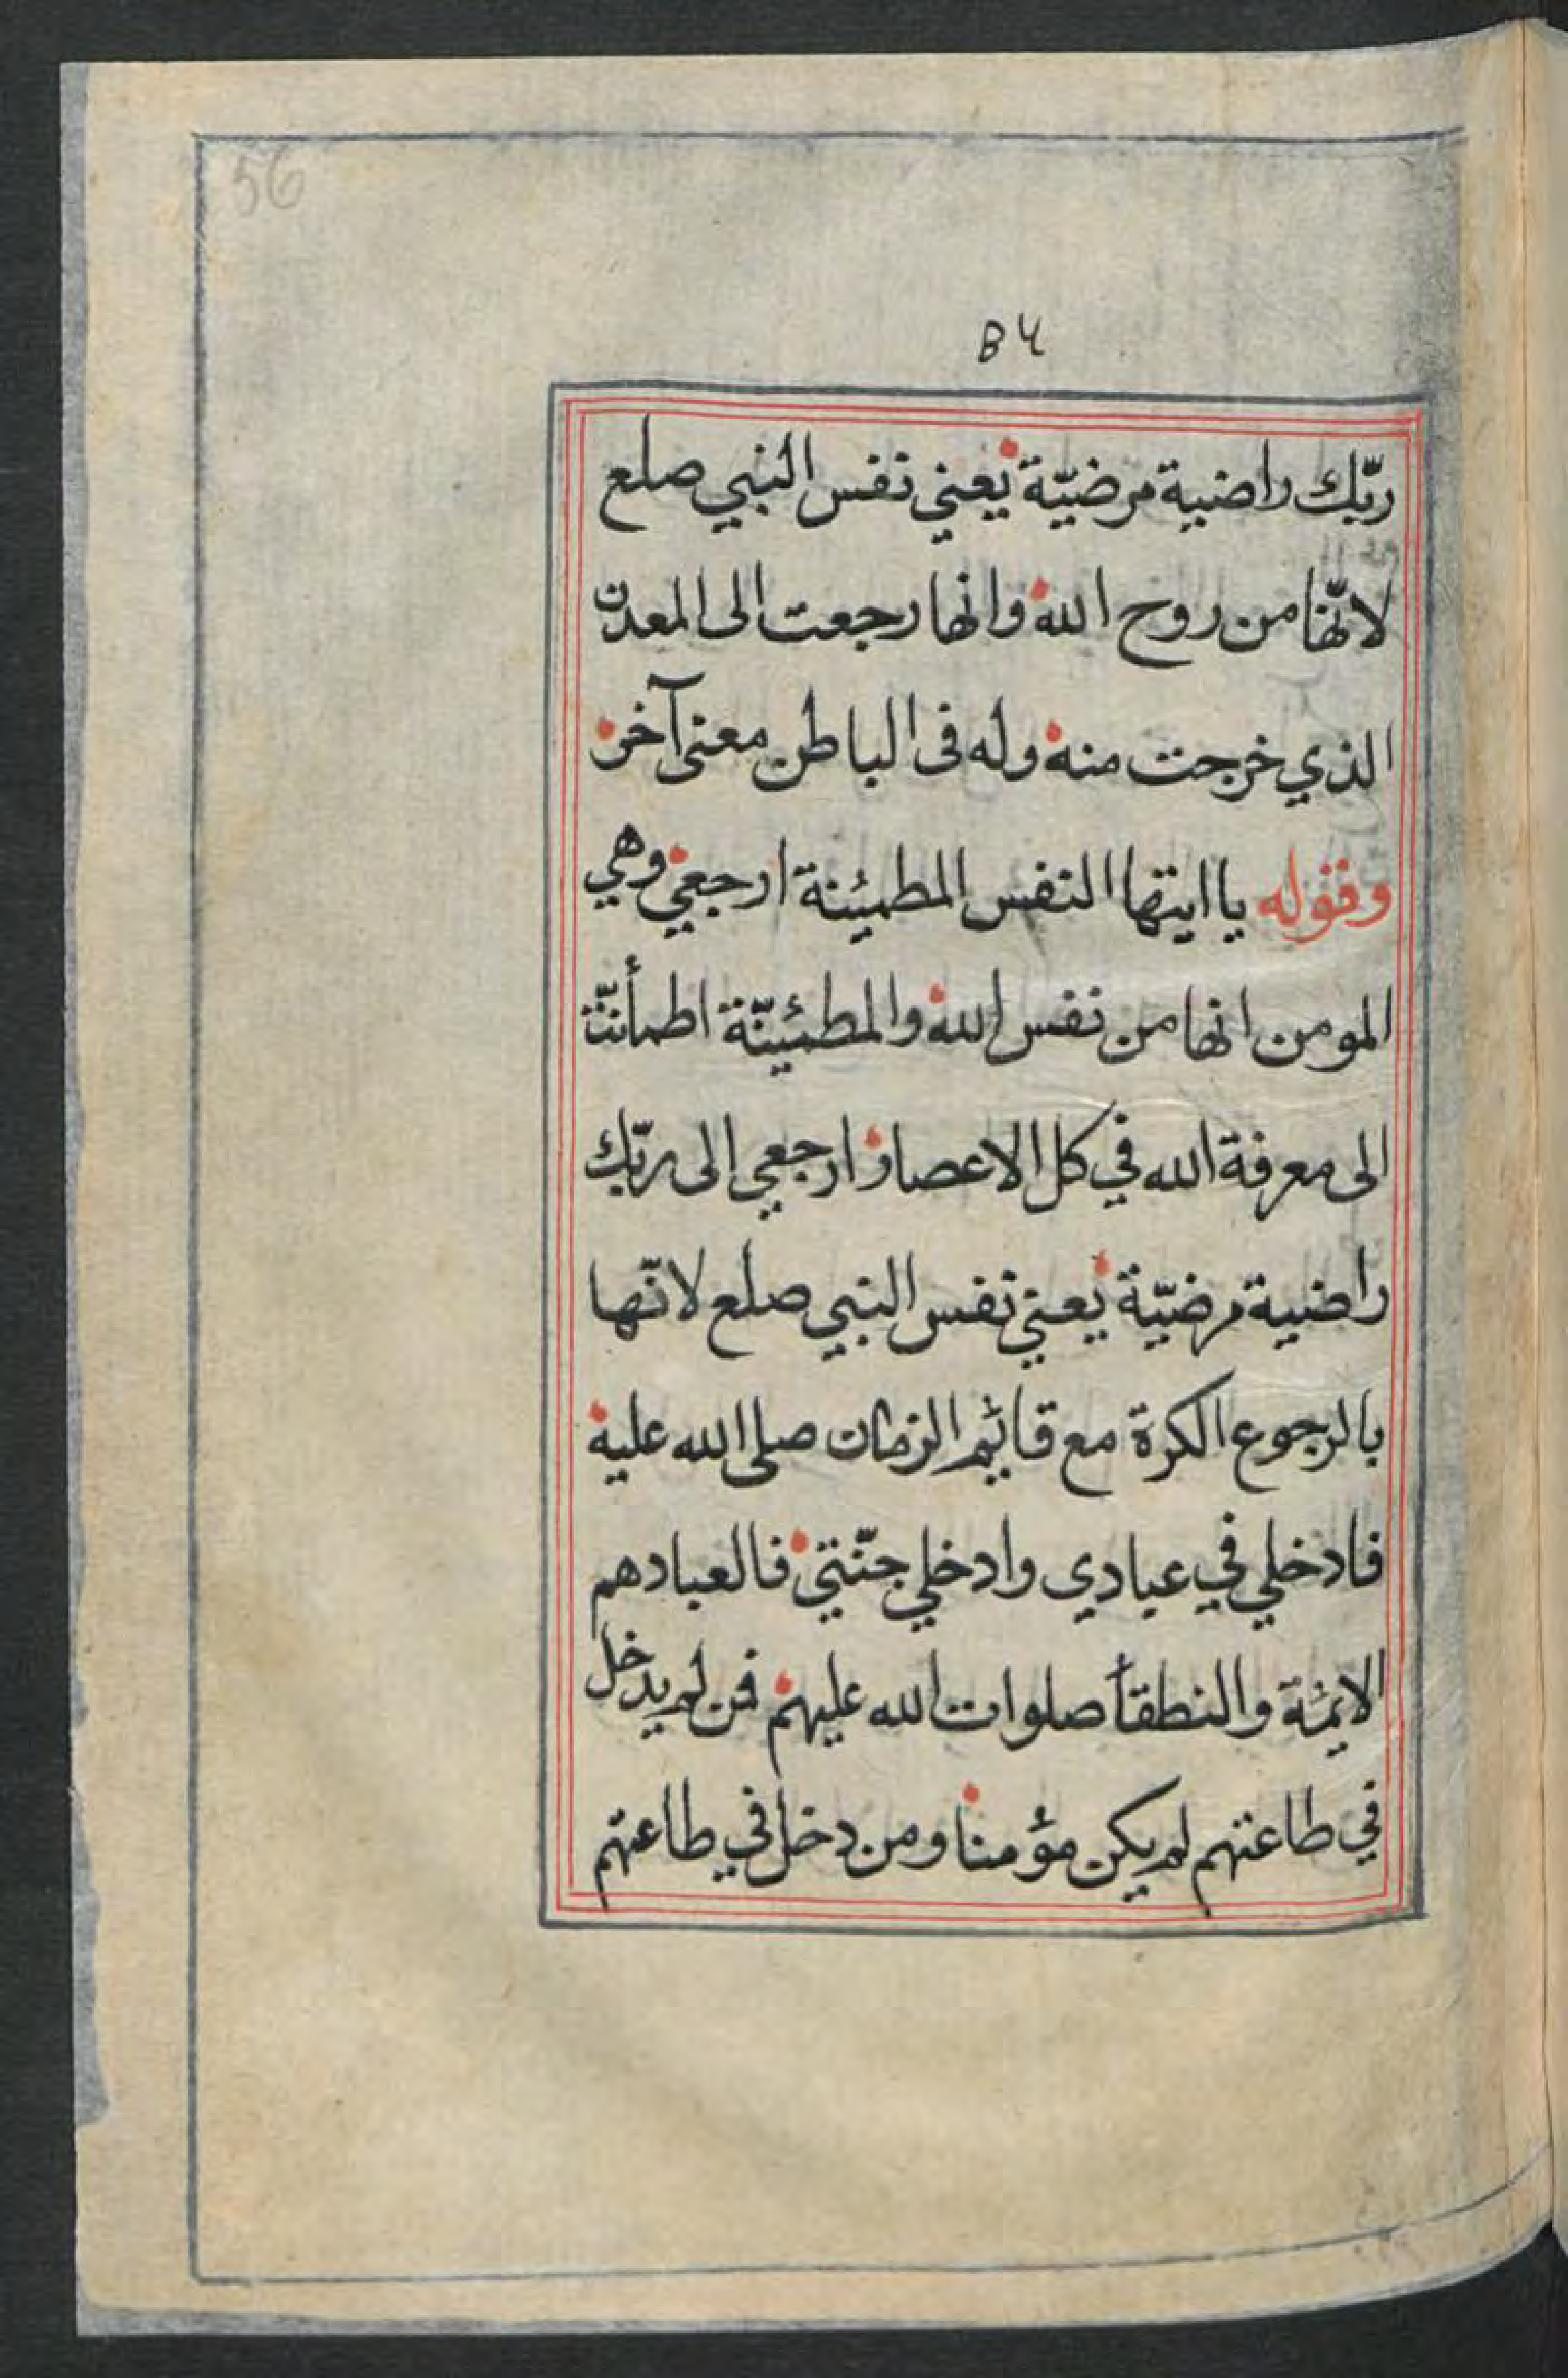 56
۵۶
ربّك راضية مرضيّة يعني نفس النبي صلع
لانّها من روح الله وانها رجعت الى المعدن
الذي خرجت منه وله فى الباطن معنى آخر
وقوله يا ايتها النفس المطمئنة ارجعي وهي
المومن انها من نفس الله والمطمئينّة اطمأنّت
الى معرفة الله في كل الاعصار ارجعي الى ربّك
راضية مرضيّة يعني نفس النبي صلع لانّها
بالرجوع الكرة مع قائيم الزمان صلى الله عليه
فادخلي في عبادي وادخلي جنّتي فالعباد هم
الايمّة والنطقأ صلوات الله عليهم فمن لم يدخل
في طاعتهم لم يكن مؤمنا ومن دخل في طاعتهم